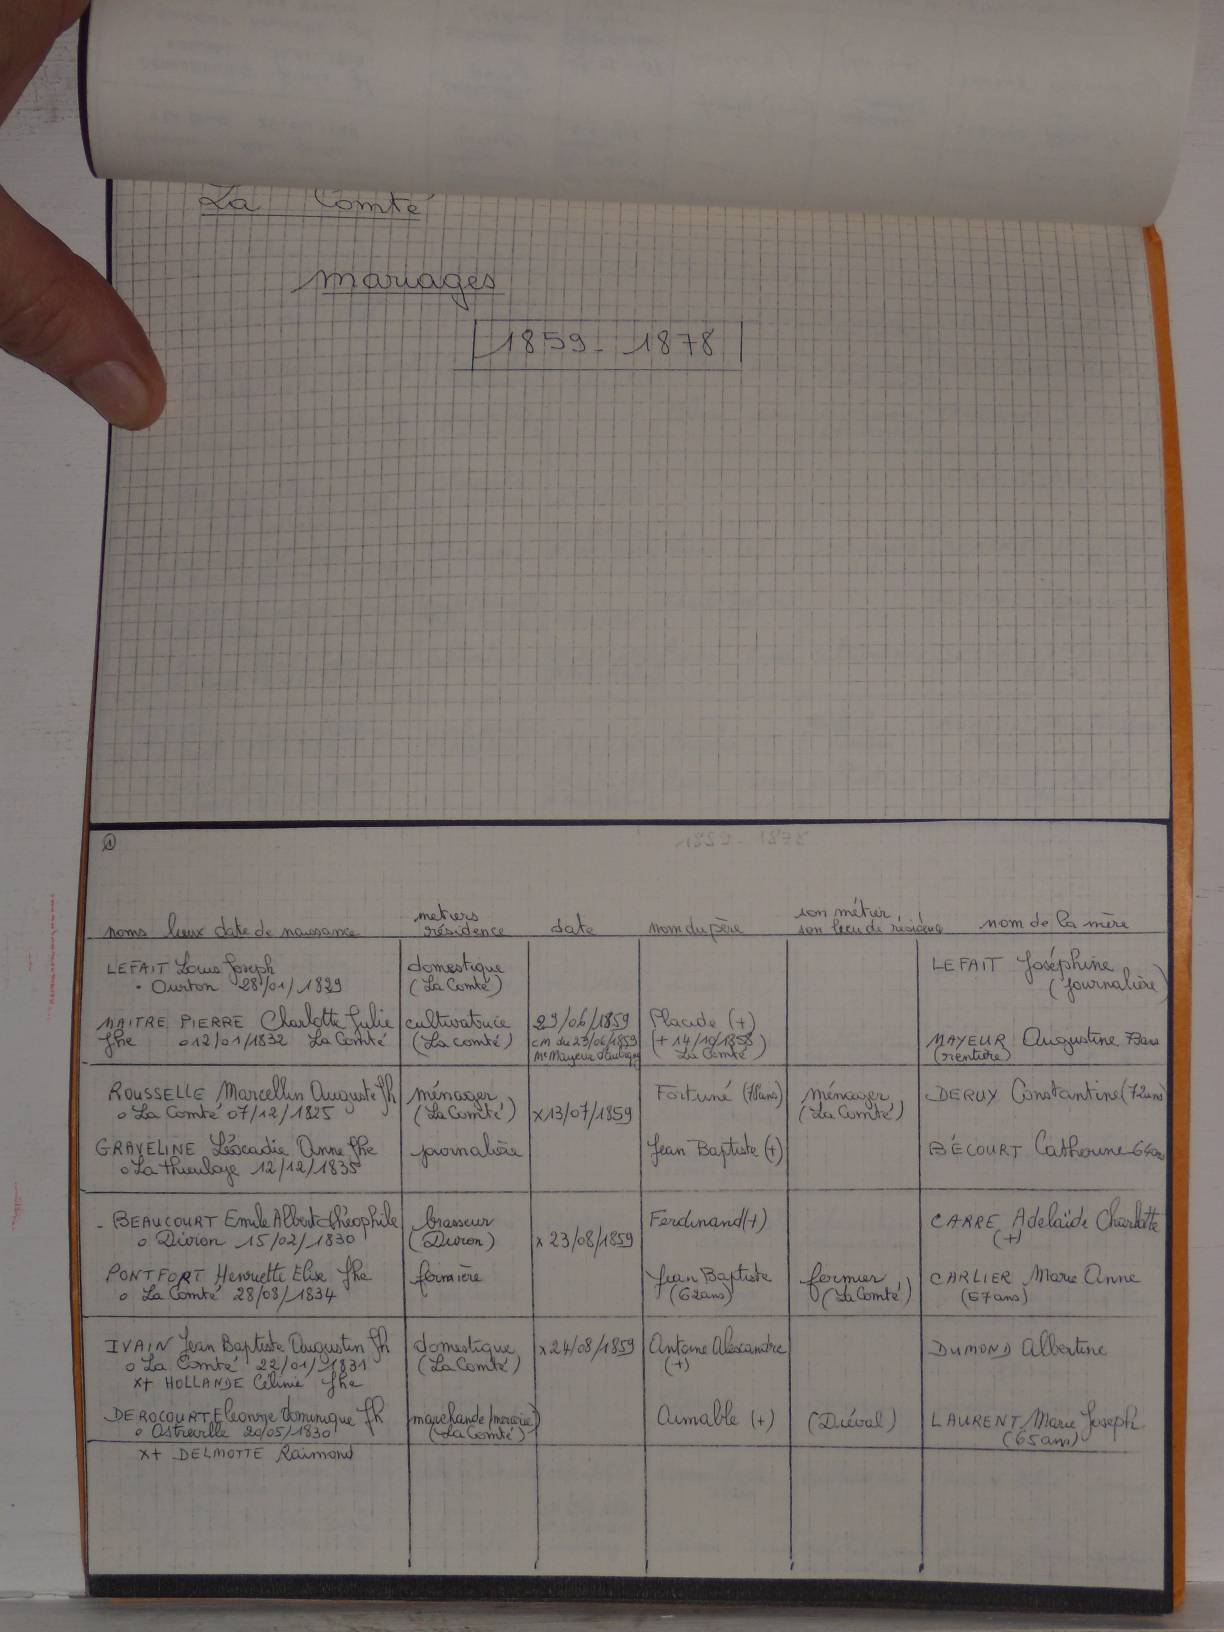 La Comté
mariages
1859 - 1878
1
noms lieux date de naissance
metiers
résidence
date
nom du père
son métier,
son lieu de résidence
nom de la mère
LEFAIT Louis Joseph
• Ourton 28/01/1829
domestique
(La Comté)
LEFAIT Joséphine
(journalière)
MAITRE PIERRE Charlotte Julie
fhe o 12/01/1832 La Comté
cultivatrice
(La comté)
29/06/1859
cm du 23/06/1859
Me Mayeur d'Aubigny
Placide (+)
(+ 14/10/1858
La Comté)
MAYEUR Augustine 73ans
(rentière)
ROUSSELLE Marcellin Auguste fh
o La Comté 07/12/1825
ménager
(La Comté)
x 13/07/1859
Fortuné (78ans)
ménager
(La Comté)
DERUY Constantine (72ans)
GRAVELINE Léocadie Anne fhe
o La thieuloye 12/12/1835
journalière
Jean Baptiste (+)
BÉCOURT Catherine 64ans
- BEAUCOURT Emile Albert théophile
o Divion 15/02/1830
brasseur
(Divion)
x 23/08/1859
Ferdinand (+)
CARRE Adelaïde Charlotte
(+)
PONTFORT Henriette Elise fhe
o La Comté 28/08/1834
fermière
Jean Baptiste
(62ans)
fermier
(La Comté)
CARLIER Marie Anne
(57ans)
IVAIN Jean Baptiste Augustin fh
o La Comté 22/01/1831
x+ HOLLANDE Célinie fhe
domestique
(La Comté)
x 24/08/1859
Antoine Alexandre
(+)
DUMOND Albertine
DEROCOURT Eleonore dominique fh
o Ostreville 20/05/1830
marchande (mercerie)
(La Comté)
Aimable (+)
(Diéval)
LAURENT Marie Joseph
(65ans)
x+ DELMOTTE Raimond